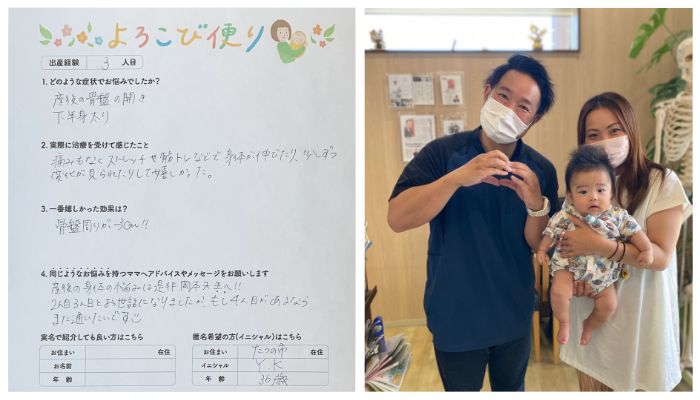 よろこび便り
出産経験 3 人目
1. どのような症状でお悩みでしたか?
産後の骨盤の開き
下半身太り
2. 実際に治療を受けて感じたこと
痛みもなくストレッチや筋トレなどで身体が伸びたり、少しずつ
変化が見られたりして嬉しかった。
3. 一番嬉しかった効果は?
骨盤周りが-3cm!!
4. 同じようなお悩みを持つママへアドバイスやメッセージをお願いします
産後の身体の悩みは是非岡本先生へ!!
2人目3人目とお世話になりましたが、もし4人目があるなら
また通いたいです
実名で紹介しても良い方はこちら
お住まい 在住
お名前
年齢
匿名希望の方(イニシャル)はこちら
お住まい たつの市 在住
イニシャル Y.K
年齢 36歳